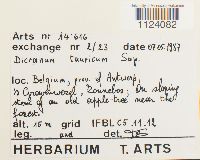 1124082
Arts nr 14'616
exchange nr 2/23 date 07.05.1987
Dicranum tauricum Sap.
loc. Belgium, prov. of Antwerp,
's Gravenwezel, on sloping
stem of an old apple-tree near the
forest.
alt. 15 m grid IFBL C5.11.12
leg. and det.
HERBARIUM T. ARTS